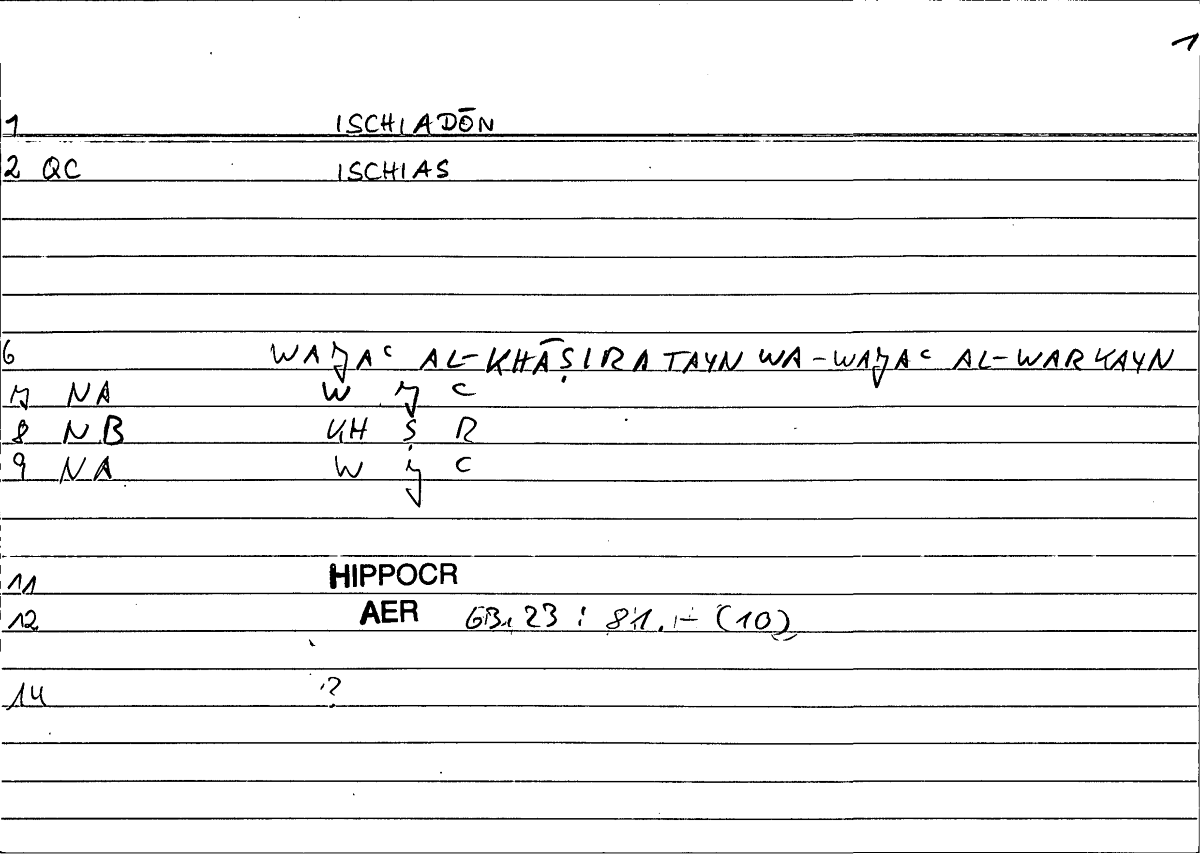 1
1 ISCHIADŌN
2 QC ISCHIAS
6 WAJAʿ AL-KHĀṢIRATAYN WA-WAJAʿ AL-WARKAYN
7 NA W J ʿ
8 NB KH Ṣ R
9 NA W J ʿ
11 HIPPOCR
12 AER 63.23 : 81.- (10)
14 ?